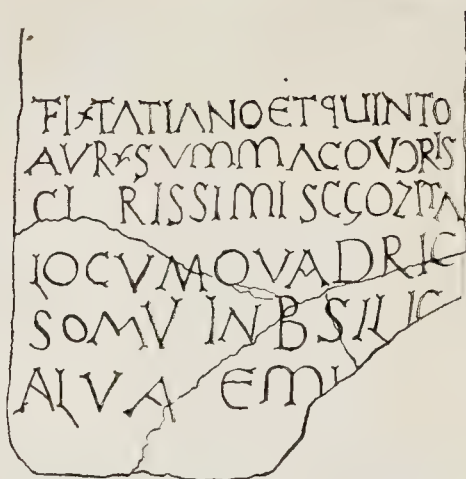 FL TATIANOETQUINTO
AVR SVMMACOVCRIS
CL RISSIMISCÇOZITA
LOCVMQVADRIC
SOMV INBSILIC
ALVA EMI